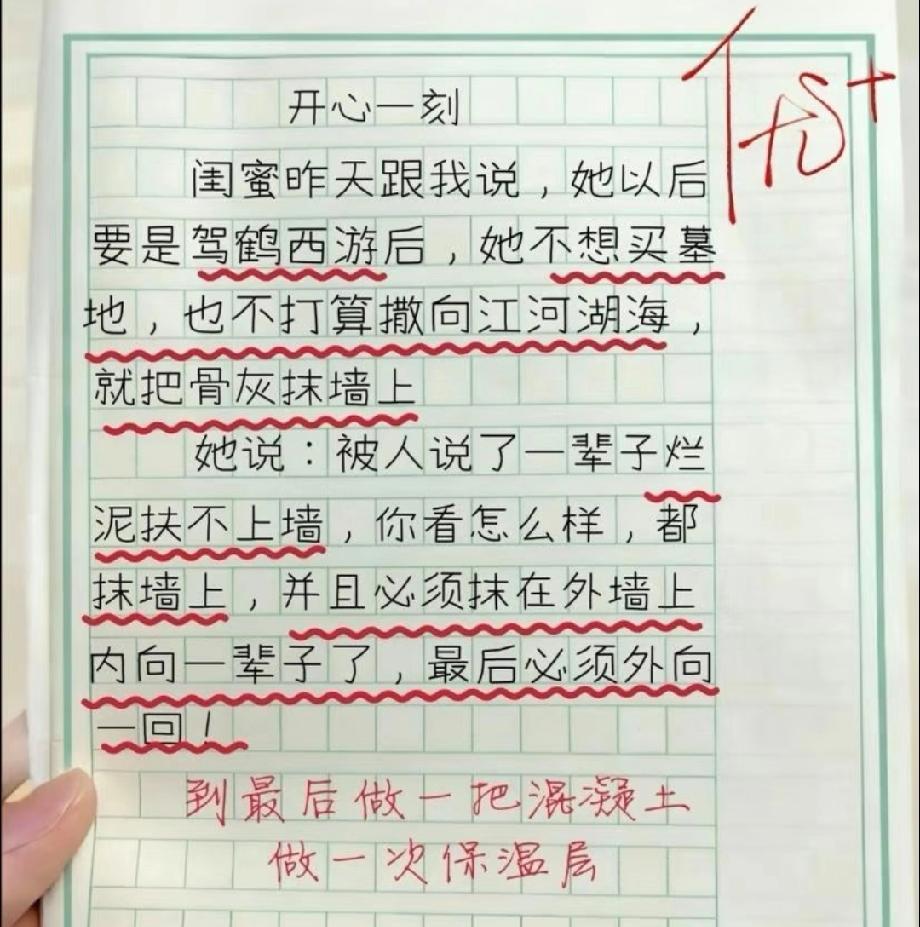 优+
开心一刻
闺蜜昨天跟我说，她以后
要是驾鹤西游后，她不想买墓
地，也不打算撒向江河湖海，
就把骨灰抹墙上
她说：被人说了一辈子烂
泥扶不上墙，你看怎么样，都
抹墙上，并且必须抹在外墙上
内向一辈子了，最后必须外向
一回！
到最后做一把混凝土
做一次保温层